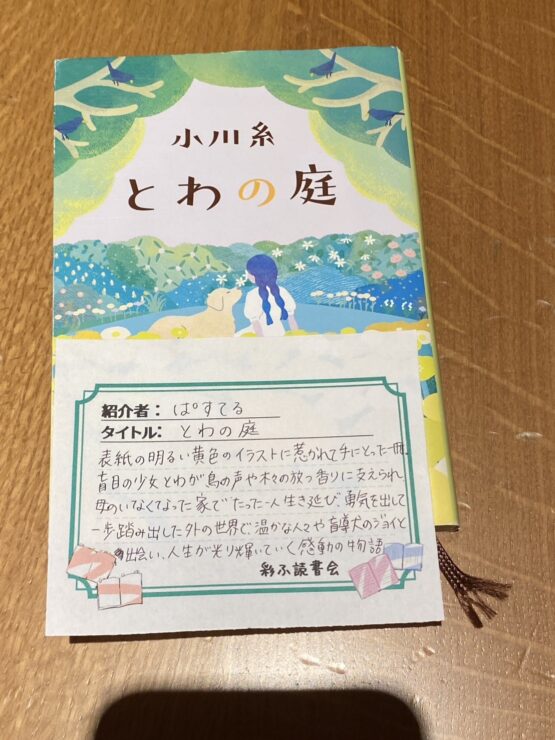 小川糸
とわの庭
紹介者： ぱすてる
タイトル： とわの庭
表紙の明るい黄色のイラストに惹かれて手にとった一冊。
盲目の少女とわが鳥の声や木々の放つ香りに支えられ、
母のいなくなった家でたった一人生き延び、勇気を出して
一歩踏み出した外の世界で、温かな人々や盲導犬のジョイと
出会い、人生が光り輝いていく感動の物語
彩ふ読書会